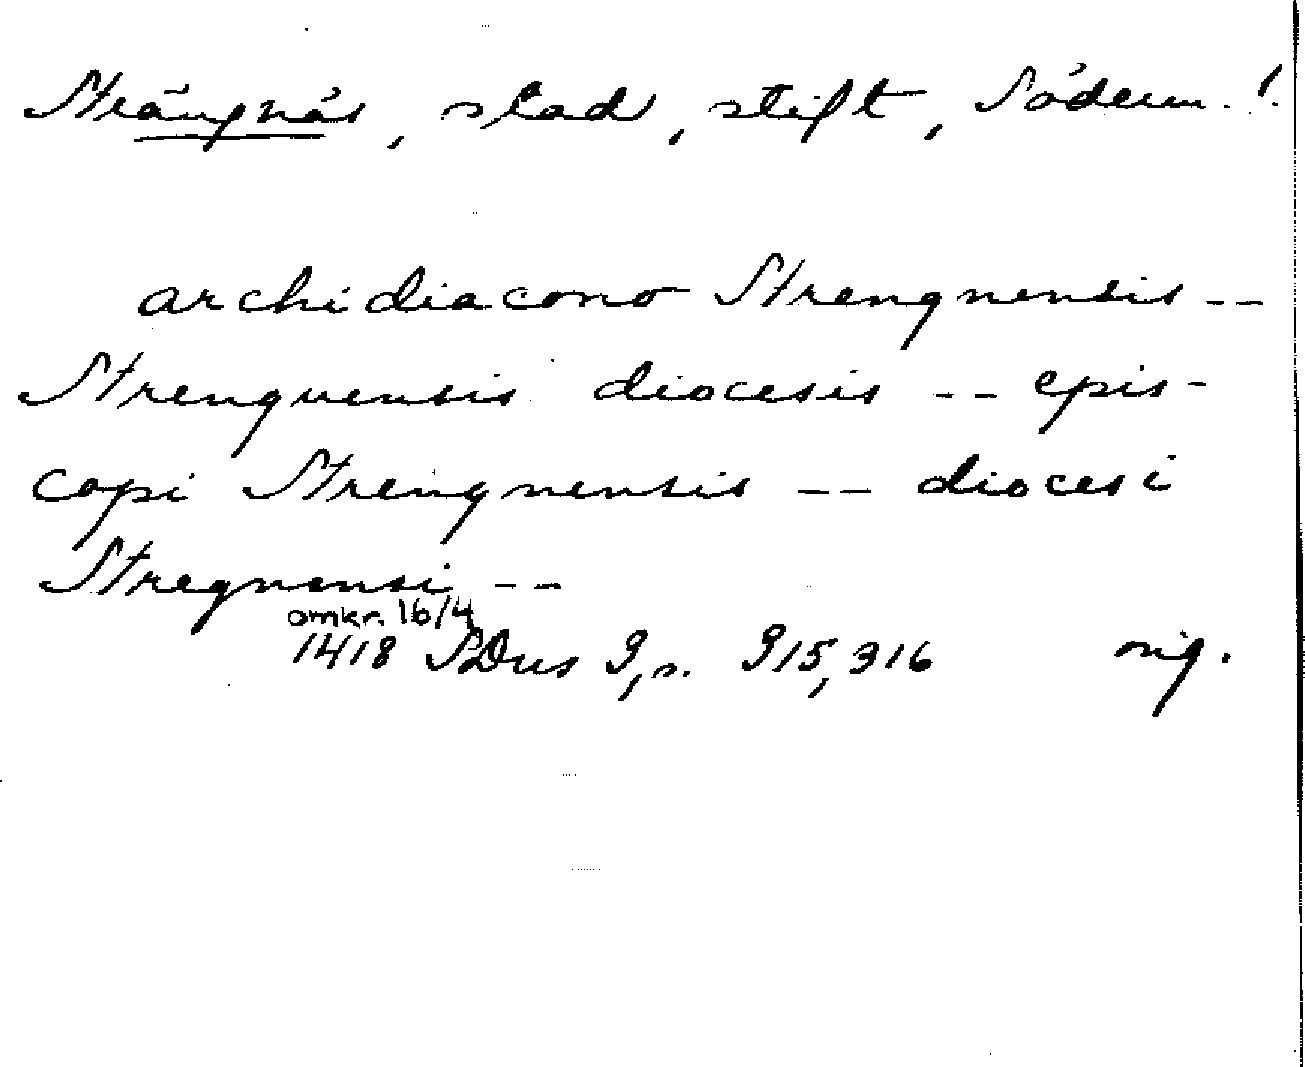 Strängnäs, stad, stift, Söderm. l.
archidiacono Strengnensis --
Strengnensis diocesis -- epis-
copi Strengnensis -- diocesi
Stregnensi --
omkr. 16/4
1418 SDns 3, s. 315, 316 orig.